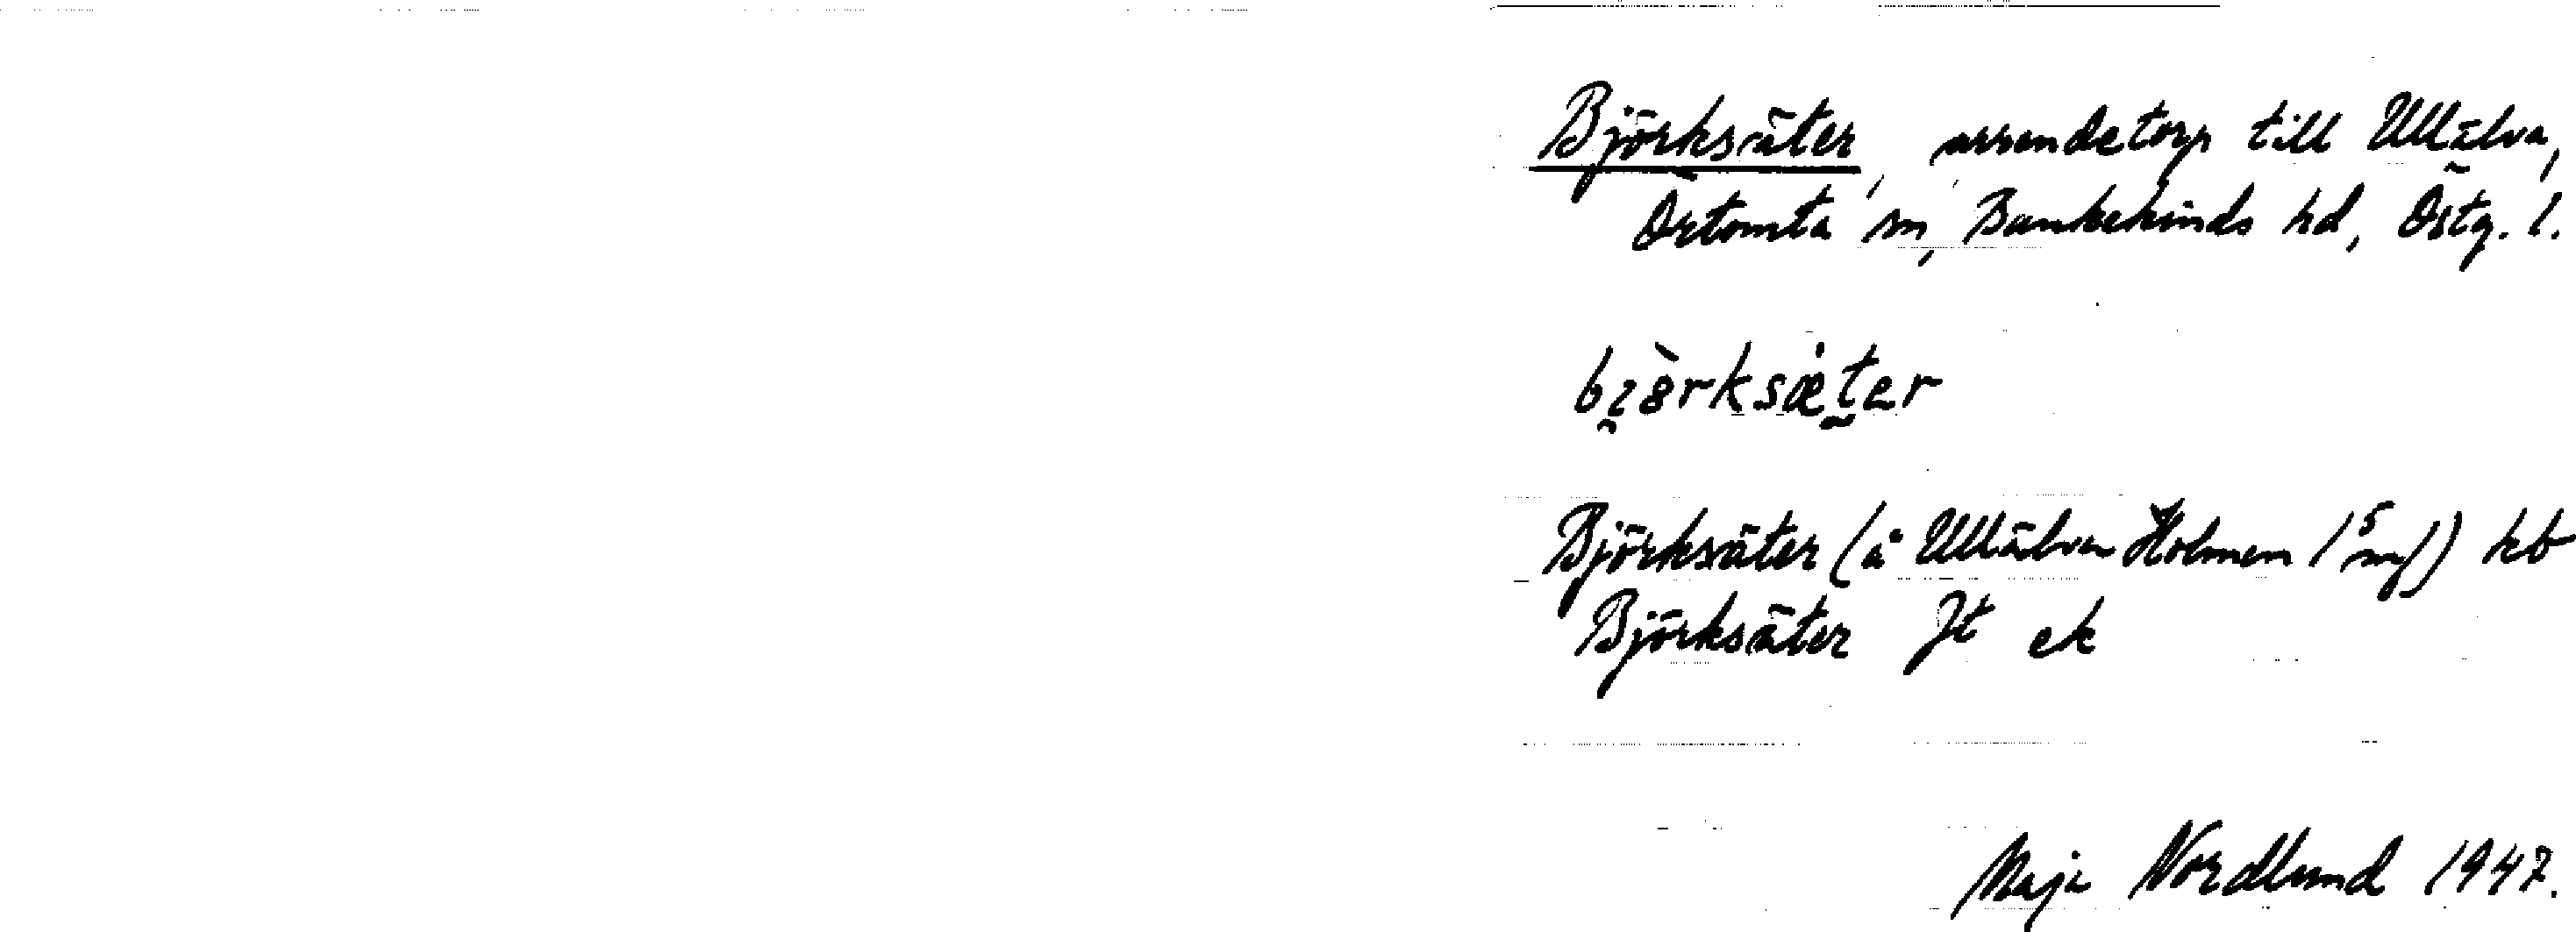 Björksäter, arrendetorp till Ullälva,
Örtomta sn, Bankekinds hd, Östg. l.
Björksäter (å Ullälva Holmen 1 5/m f) kb
Björksäter Jt ek
Maja Nordlund 1947.